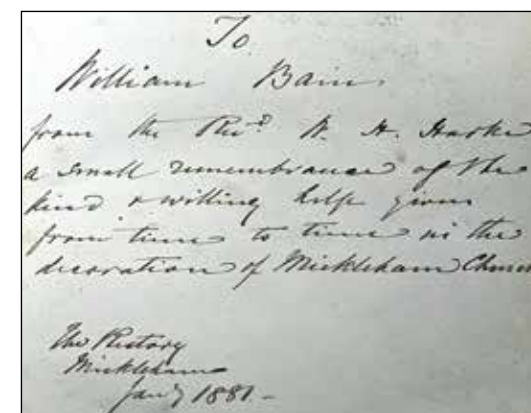 To
William Bain
from the Revd. W. H. Harke
a small remembrance of the
kind & willing help given
from time to time in the
decoration of Mickleham Church
The Rectory
Mickleham
Jany 1881 -